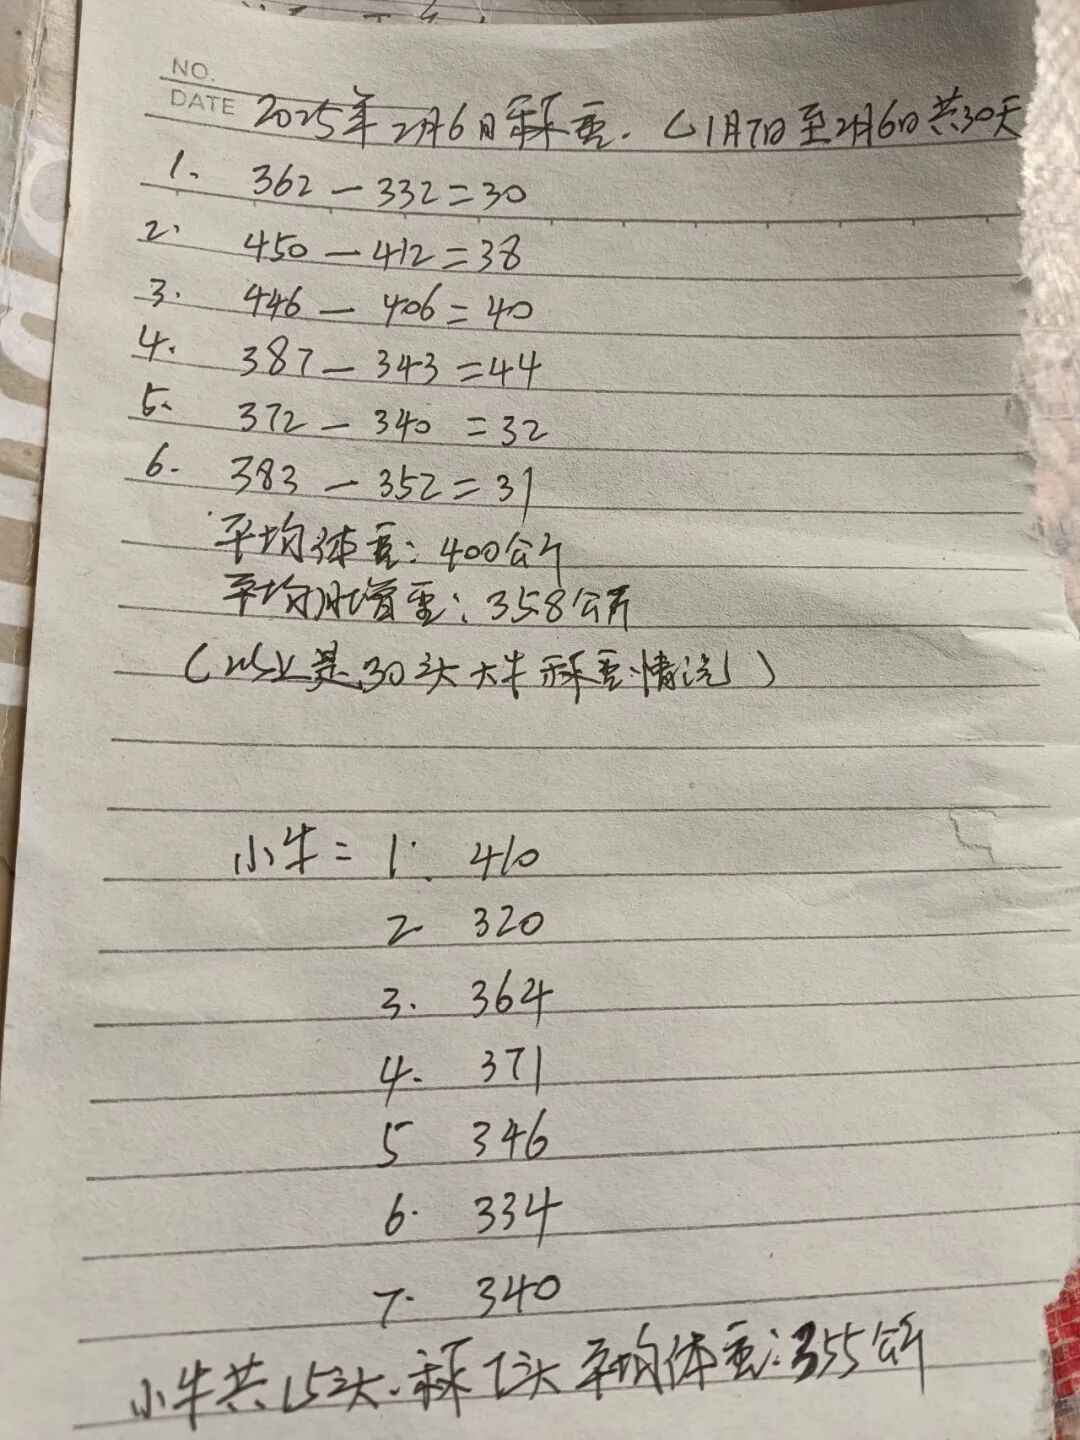 NO.
DATE 2025年2月6日秤重.（1月7日至2月6日共30天
1. 362-332=30
2. 450-412=38
3. 446-406=40
4. 387-343=44
5. 372-340=32
6. 383-352=31
平均体重:400公斤
平均月增重:35.8公斤
(以上是30头大牛秤重情况)
小牛=1. 410
2 320
3. 364
4. 371
5 346
6. 334
7. 340
小牛共15头.秤7头平均体重:355公斤